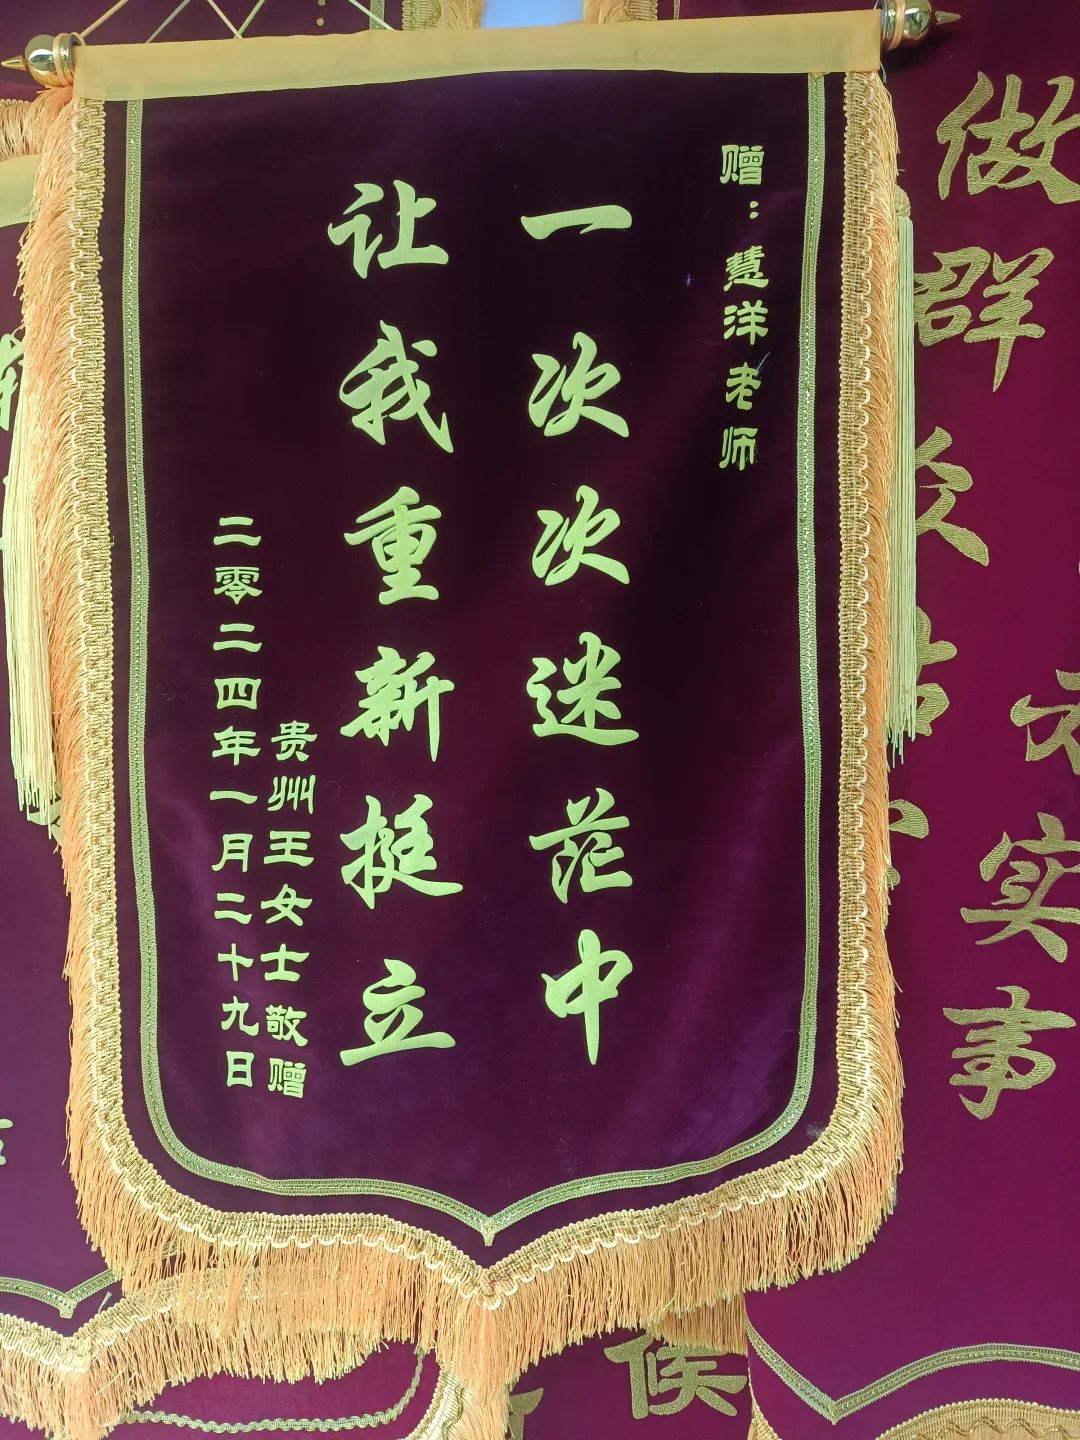 赠：慧洋老师
一次次迷茫中
让我重新挺立
贵州王女士敬赠
二零二四年一月二十九日
做群众
实事
候